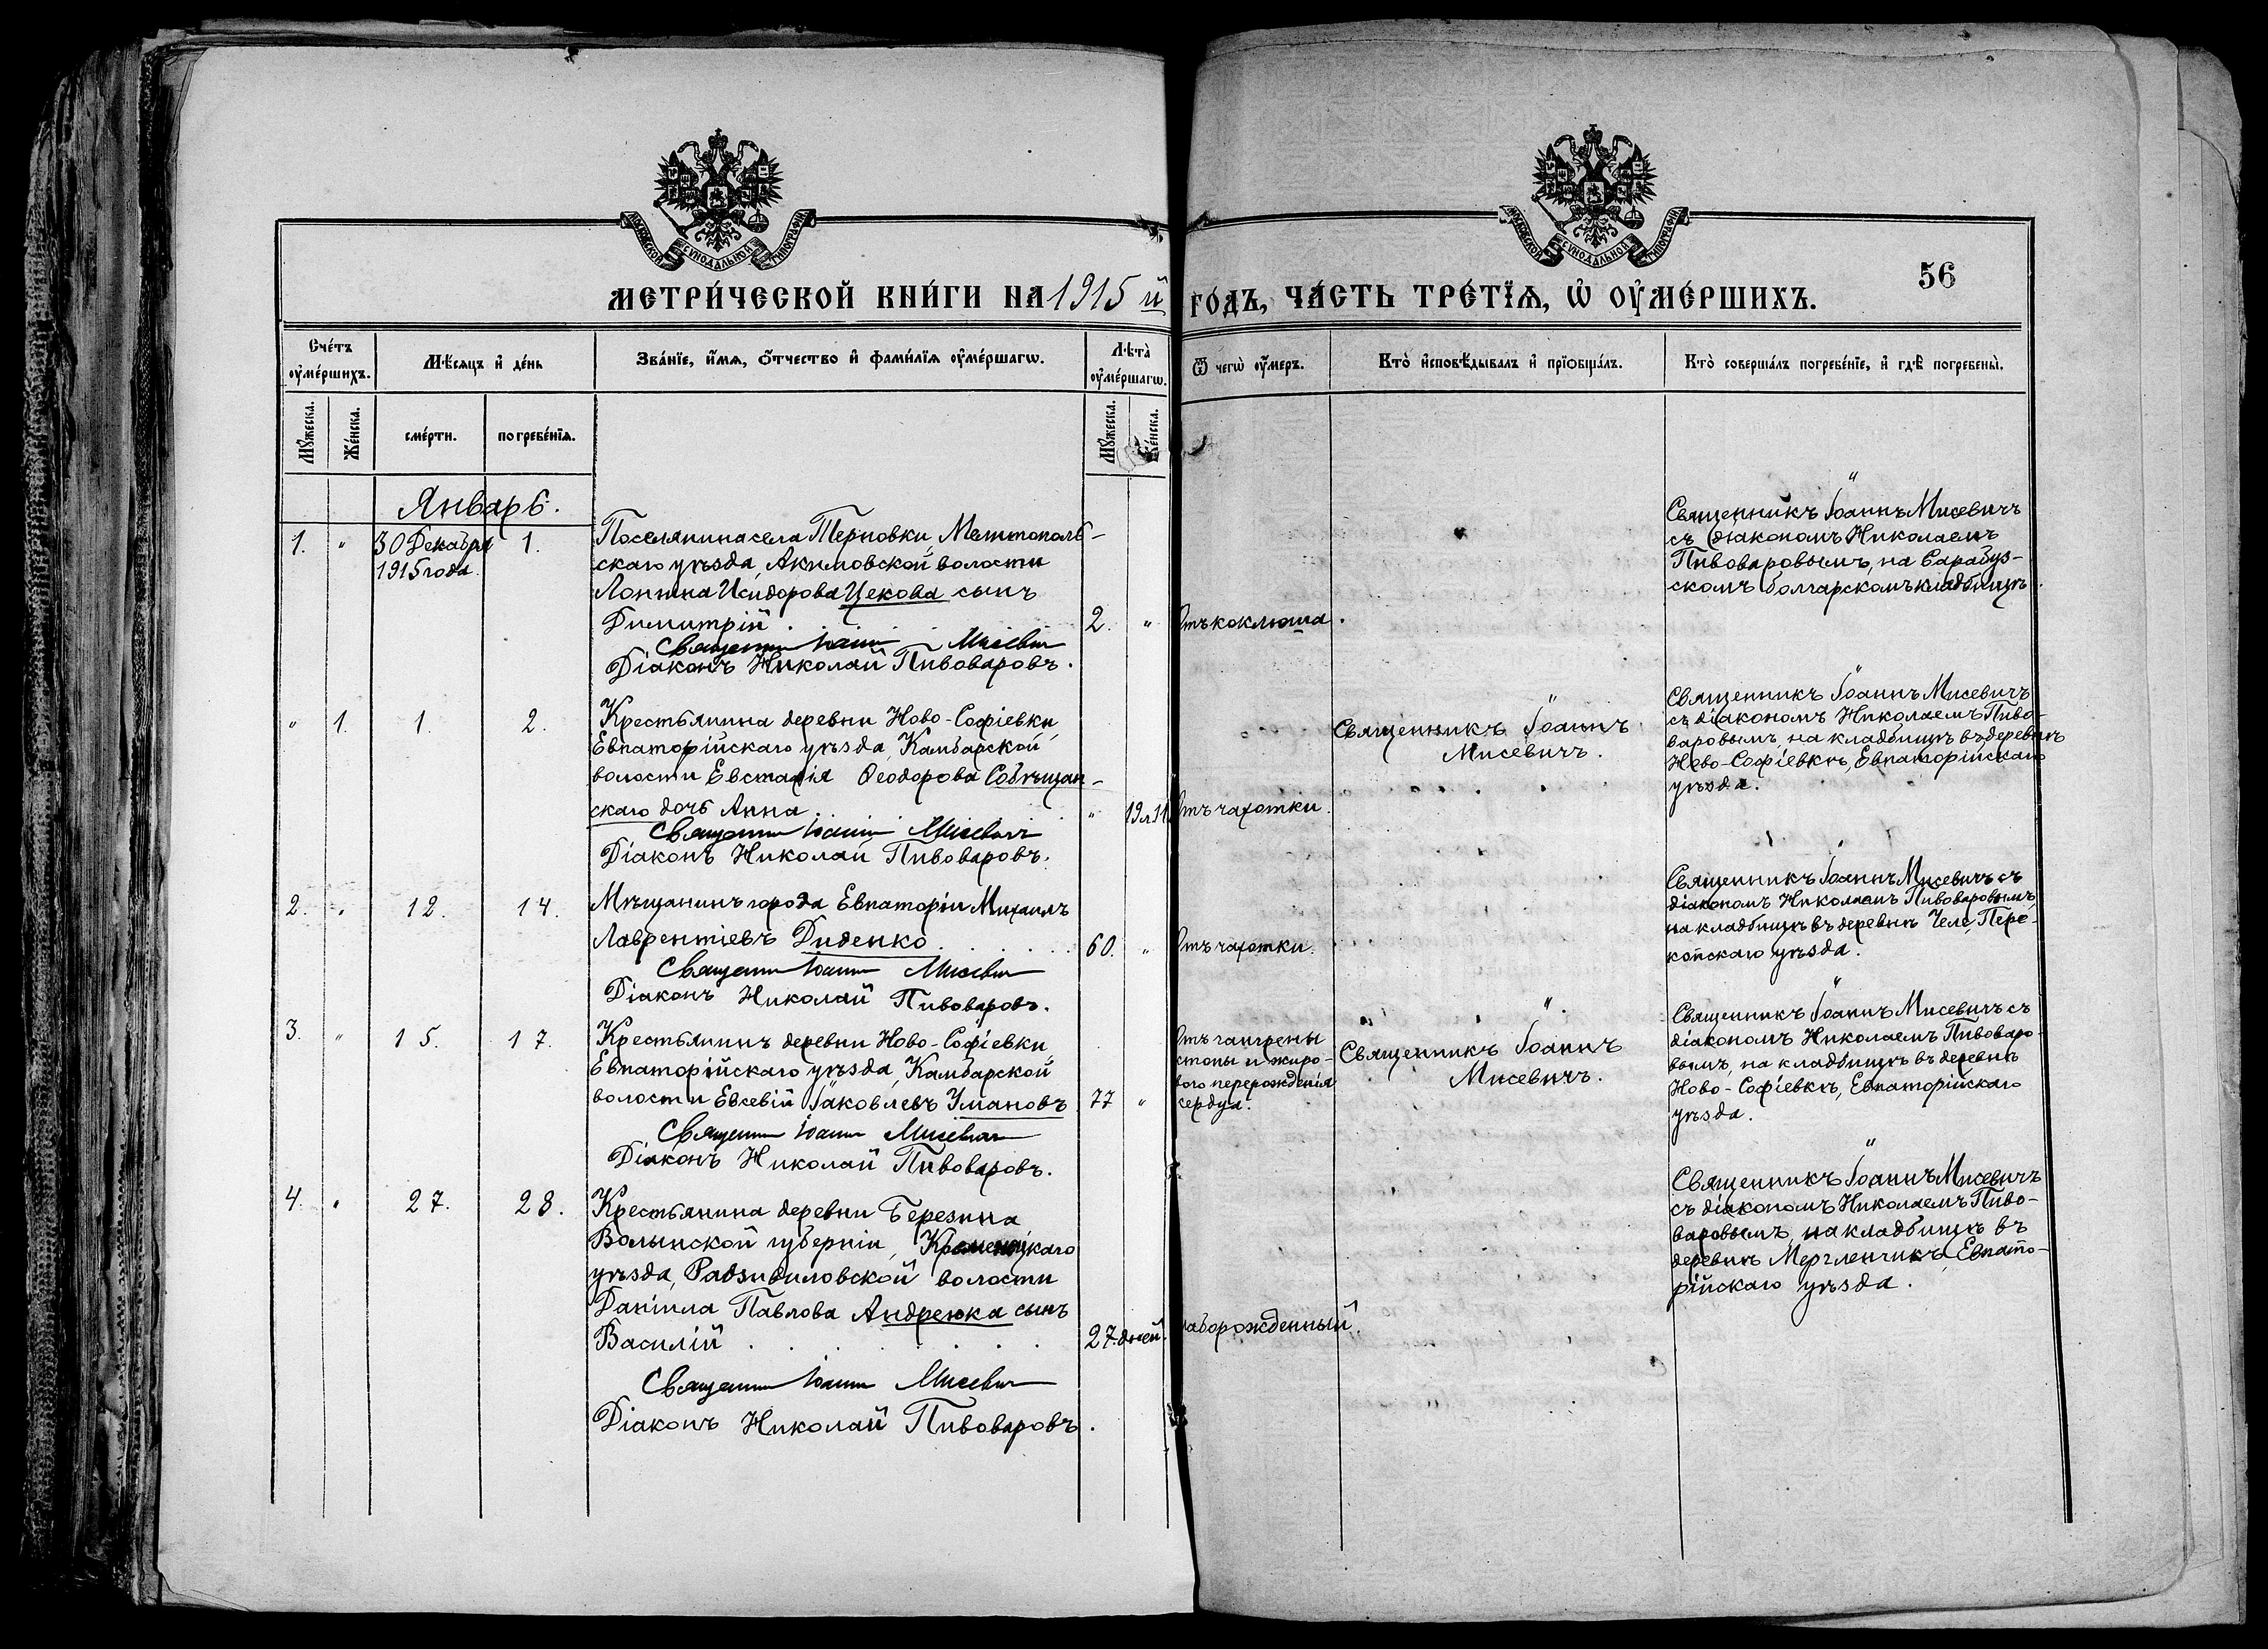 МОСКОВСКОЙ СѴНОДАЛЬНОЙ ТИПОГРАФІИ
МОСКОВСКОЙ СѴНОДАЛЬНОЙ ТИПОГРАФІИ
56
МЕТРИ́ЧЕСКОЙ КНИ́ГИ НА 1915 й
ГО́ДЪ, ЧА́СТЬ ТРЕ́ТЇѦ, Ѡ҆ ОУ҆МЕ́РШИХЪ.
Сче́тъ оу҆ме́ршихъ.
Мѣ́сѧцъ и҆ де́нь
Зва́нїе, и҆́мѧ, ѻ҆́тчество и҆ фами́лїѧ оу҆ме́ршагѡ.
Лѣта̀ оу҆ме́ршагѡ.
Ѿ чегѡ̀ оу҆́меръ.
Кто̀ и҆сповѣ́дывалъ и҆ прїѡбща́лъ.
Кто̀ соверша́лъ погребе́нїе, и҆ гдѣ̀ погребены̀.
Мꙋ́жеска.
Же́нска.
сме́рти.
погребе́нїѧ.
Мꙋ́жеска.
Же́нска.
Январь.
1. " 30 Декабря 1.
1915 года.
Поселянина села Терновки, Мелитополь-
скаго уѣзда, Акимовской волости
Логина Исидорова Цекова сынъ
Димитрій . 2. " Отъ коклюша.
Священникъ Іоаннъ Мисевичъ
Діаконъ Николай Пивоваровъ.
Священникъ Іоаннъ Мисевичъ
съ діакономъ Николаемъ
Пивоваровымъ, на Сарабуз-
скомъ болгарскомъ кладбищѣ.
" 1. 1. 2.
Крестьянина деревни Ново-Софіевки,
Евпаторійскаго уѣзда, Камбарской
волости Евстафія Ѳеодорова Собѣщан-
скаго дочь Анна. " 19 л 11 Отъ чахотки.
Священникъ Іоаннъ Мисевичъ
Діаконъ Николай Пивоваровъ.
Священникъ Іоаннъ
Мисевичъ.
Священникъ Іоаннъ Мисевичъ
съ діакономъ Николаемъ Пиво-
варовымъ, на кладбищѣ въ деревнѣ
Ново-Софіевкѣ, Евпаторійскаго
уѣзда.
2. " 12. 14.
Мѣщанинъ города Евпаторіи Михаилъ
Лаврентіевъ Диденко . 60. " Отъ чахотки.
Священникъ Іоаннъ Мисевичъ
Діаконъ Николай Пивоваровъ.
Священникъ Іоаннъ Мисевичъ съ
діакономъ Николаемъ Пивоваровымъ,
на кладбищѣ въ деревнѣ Челе, Пере-
копскаго уѣзда.
3. " 15. 17.
Крестьянинъ деревни Ново-Софіевки
Евпаторійскаго уѣзда, Камбарской
волости Евсевій Іаковлевъ Умановъ 77 "
Священникъ Іоаннъ Мисевичъ
Діаконъ Николай Пивоваровъ.
Отъ гангрены
стопы и жиро-
вого перерожденія
сердца.
Священникъ Іоаннъ
Мисевичъ.
Священникъ Іоаннъ Мисевичъ съ
діакономъ Николаемъ Пивоваро-
вымъ, на кладбищѣ въ деревнѣ
Ново-Софіевкѣ, Евпаторійскаго
уѣзда.
4. " 27. 28.
Крестьянина деревни Березина
Волынской губерніи, Кременецкаго
уѣзда, Радзивиловской волости
Даніила Павлова Андреюка сынъ
Василій . 27. дней. слаборожденный.
Священникъ Іоаннъ Мисевичъ
Діаконъ Николай Пивоваровъ.
Священникъ Іоаннъ Мисевичъ
съ діакономъ Николаемъ Пиво-
варовымъ, на кладбищѣ въ
деревнѣ Мерглечикъ, Евпато-
рійскаго уѣзда.